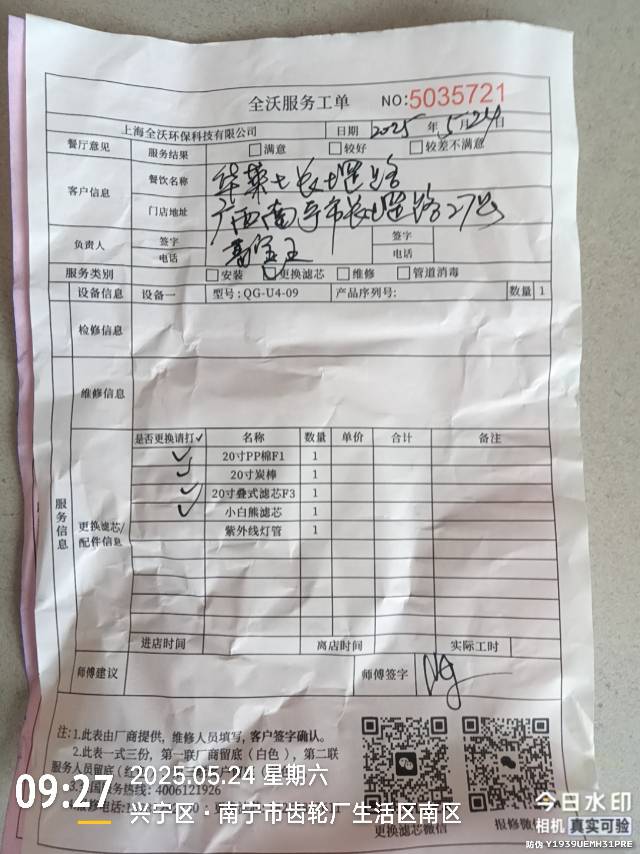 全沃服务工单 NO:5035721
上海全沃环保科技有限公司 日期 2025 年 5月24日
餐厅意见 服务结果 □满意 □较好 □较差不满意
客户信息 餐饮名称 华莱士长堽路
门店地址 广西南宁市长堽路27号
负责人 签字 签字
电话 电话
服务类别 □安装 □更换滤芯 □维修 □管道消毒
设备信息 设备一 型号:QG-U4-09 产品序列号: 数量 1
检修信息
维修信息
服务信息
更换滤芯/配件信息
是否更换请打✓ 名称 数量 单价 合计 备注
✓ 20寸PP棉F1 1
✓ 20寸炭棒 1
✓ 20寸叠式滤芯F3 1
✓ 小白熊滤芯 1
紫外线灯管 1
进店时间 离店时间 实际工时
师傅建议 师傅签字
注:1.此表由厂商提供，维修人员填写，客户签字确认。
2.此表一式三份，第一联厂商留底（白色），第二联
服务人员留底
服务热线: 4006121926
更换滤芯微信 报修微信
09:27
2025.05.24 星期六
兴宁区·南宁市齿轮厂生活区南区
今日水印
相机 真实可验
防伪 Y1939UEMH31PRE